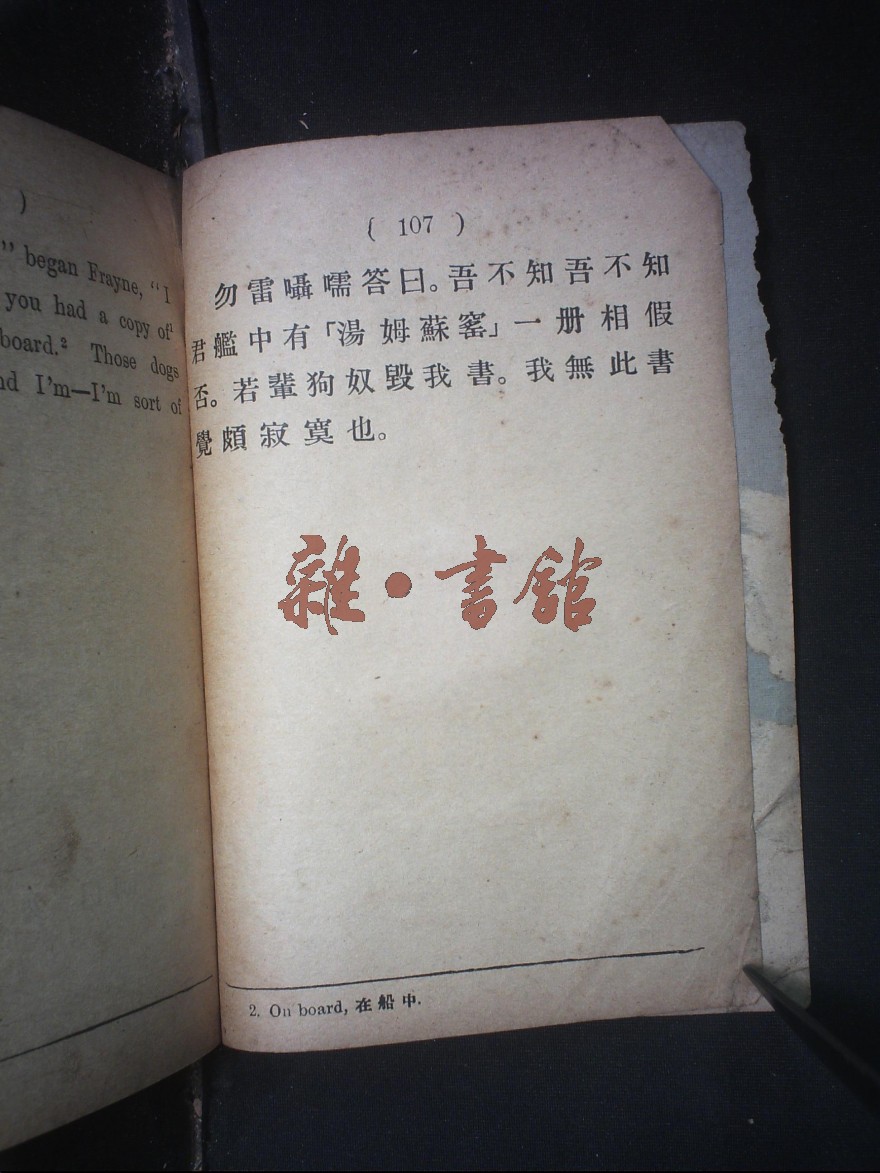 )
" began Frayne, "I
you had a copy of¹
board.² Those dogs
nd I'm—I'm sort of
( 107 )
勿雷囁嚅答曰。吾不知吾不知
君艦中有「湯姆蘇窰」一册相假
否。若輩狗奴毀我書。我無此書
覺頗寂寞也。
雜·書館
2. On board, 在船中.